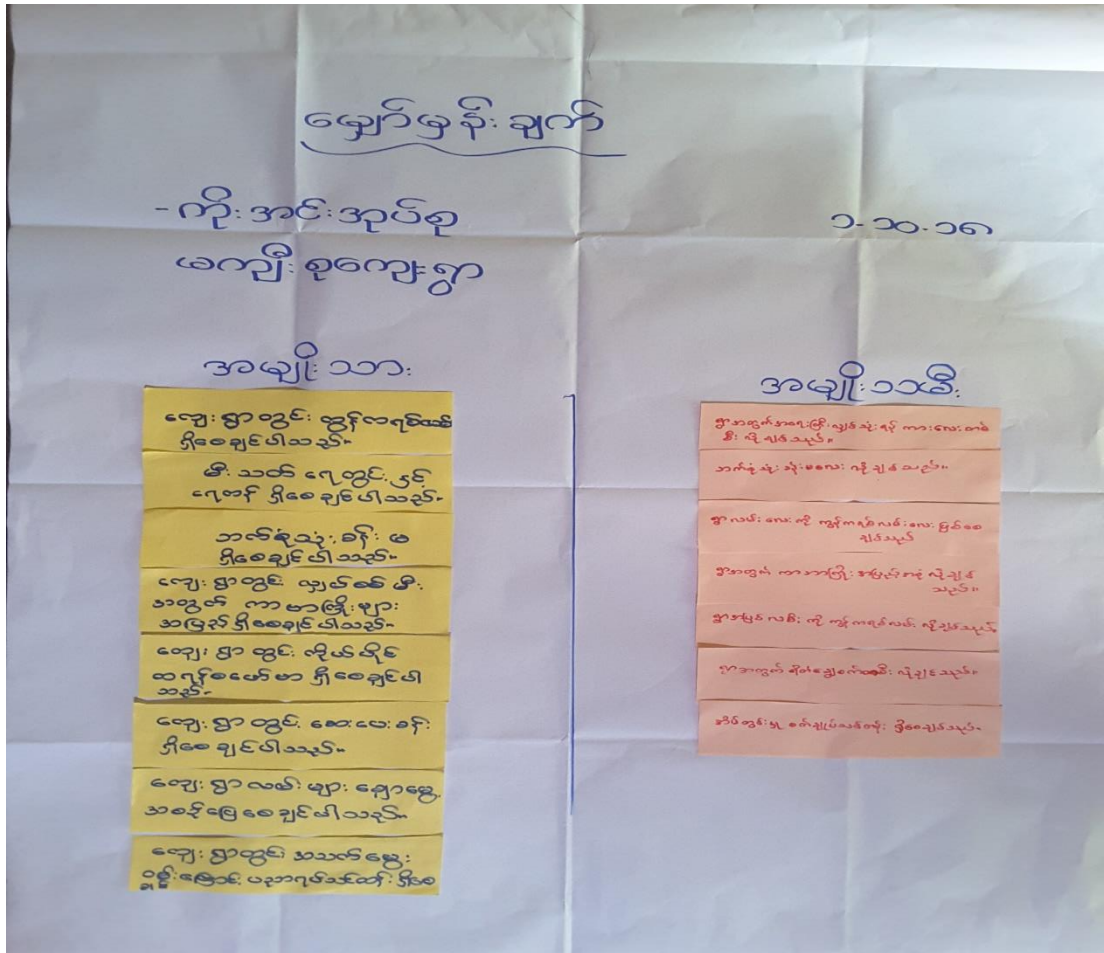 မျှော်မှန်းချက်
-ကိုးအင်းအုပ်စု
၁-၁၀-၁၆
မကျီးစုကျေးရွာ
အမျိုးသား
ကျေးရွာတွင်း ကွန်ကရစ်လမ်း
ရှိစေချင်ပါသည်။
မီးသတ်ရေတွင်းနှင့်
ရေကန် ရှိစေချင်ပါသည်။
ဘက်စုံသုံးခန်းမ
ရှိစေချင်ပါသည်။
ကျေးရွာတွင်း လျှပ်စစ်မီး
အတွက်
အမြည် ရှိစေချင်ပါသည်။
ကျေးရွာတွင်း ကိုယ်ပိုင်
ထရန်စဖော်မာ ရှိစေချင်ပါ
သည်။
ကျေးရွာတွင်း ဆေးပေးခန်း
ရှိစေချင်ပါသည်။
ကျေးရွာလမ်းများ ချောမွေ့
အဆင်ပြေစေချင်ပါသည်။
ကျေးရွာတွင်း အသက်မွေး
ဝမ်းကြောင်း ပညာရပ်သင်တန်း ရှိစေ
အမျိုးသမီး
ရွာအတွက် အရေးကြီးလျှင်သုံးရန် ကားလေးတစ်
စီး လိုချင်သည်။
ဘက်စုံသုံး လိုချင်သည်။
ရွာလမ်းလေးကို ကွန်ကရစ်လမ်းလေး ဖြစ်စေ
ချင်သည်
ရွာအတွက် လိုချင်
သည်။
ကို ကွန်ကရစ်လမ်း လိုချင်သည်။
ရွာအတွက် လိုချင်သည်။
စက်ချုပ်သင်တန်း ရှိစေချင်သည်။